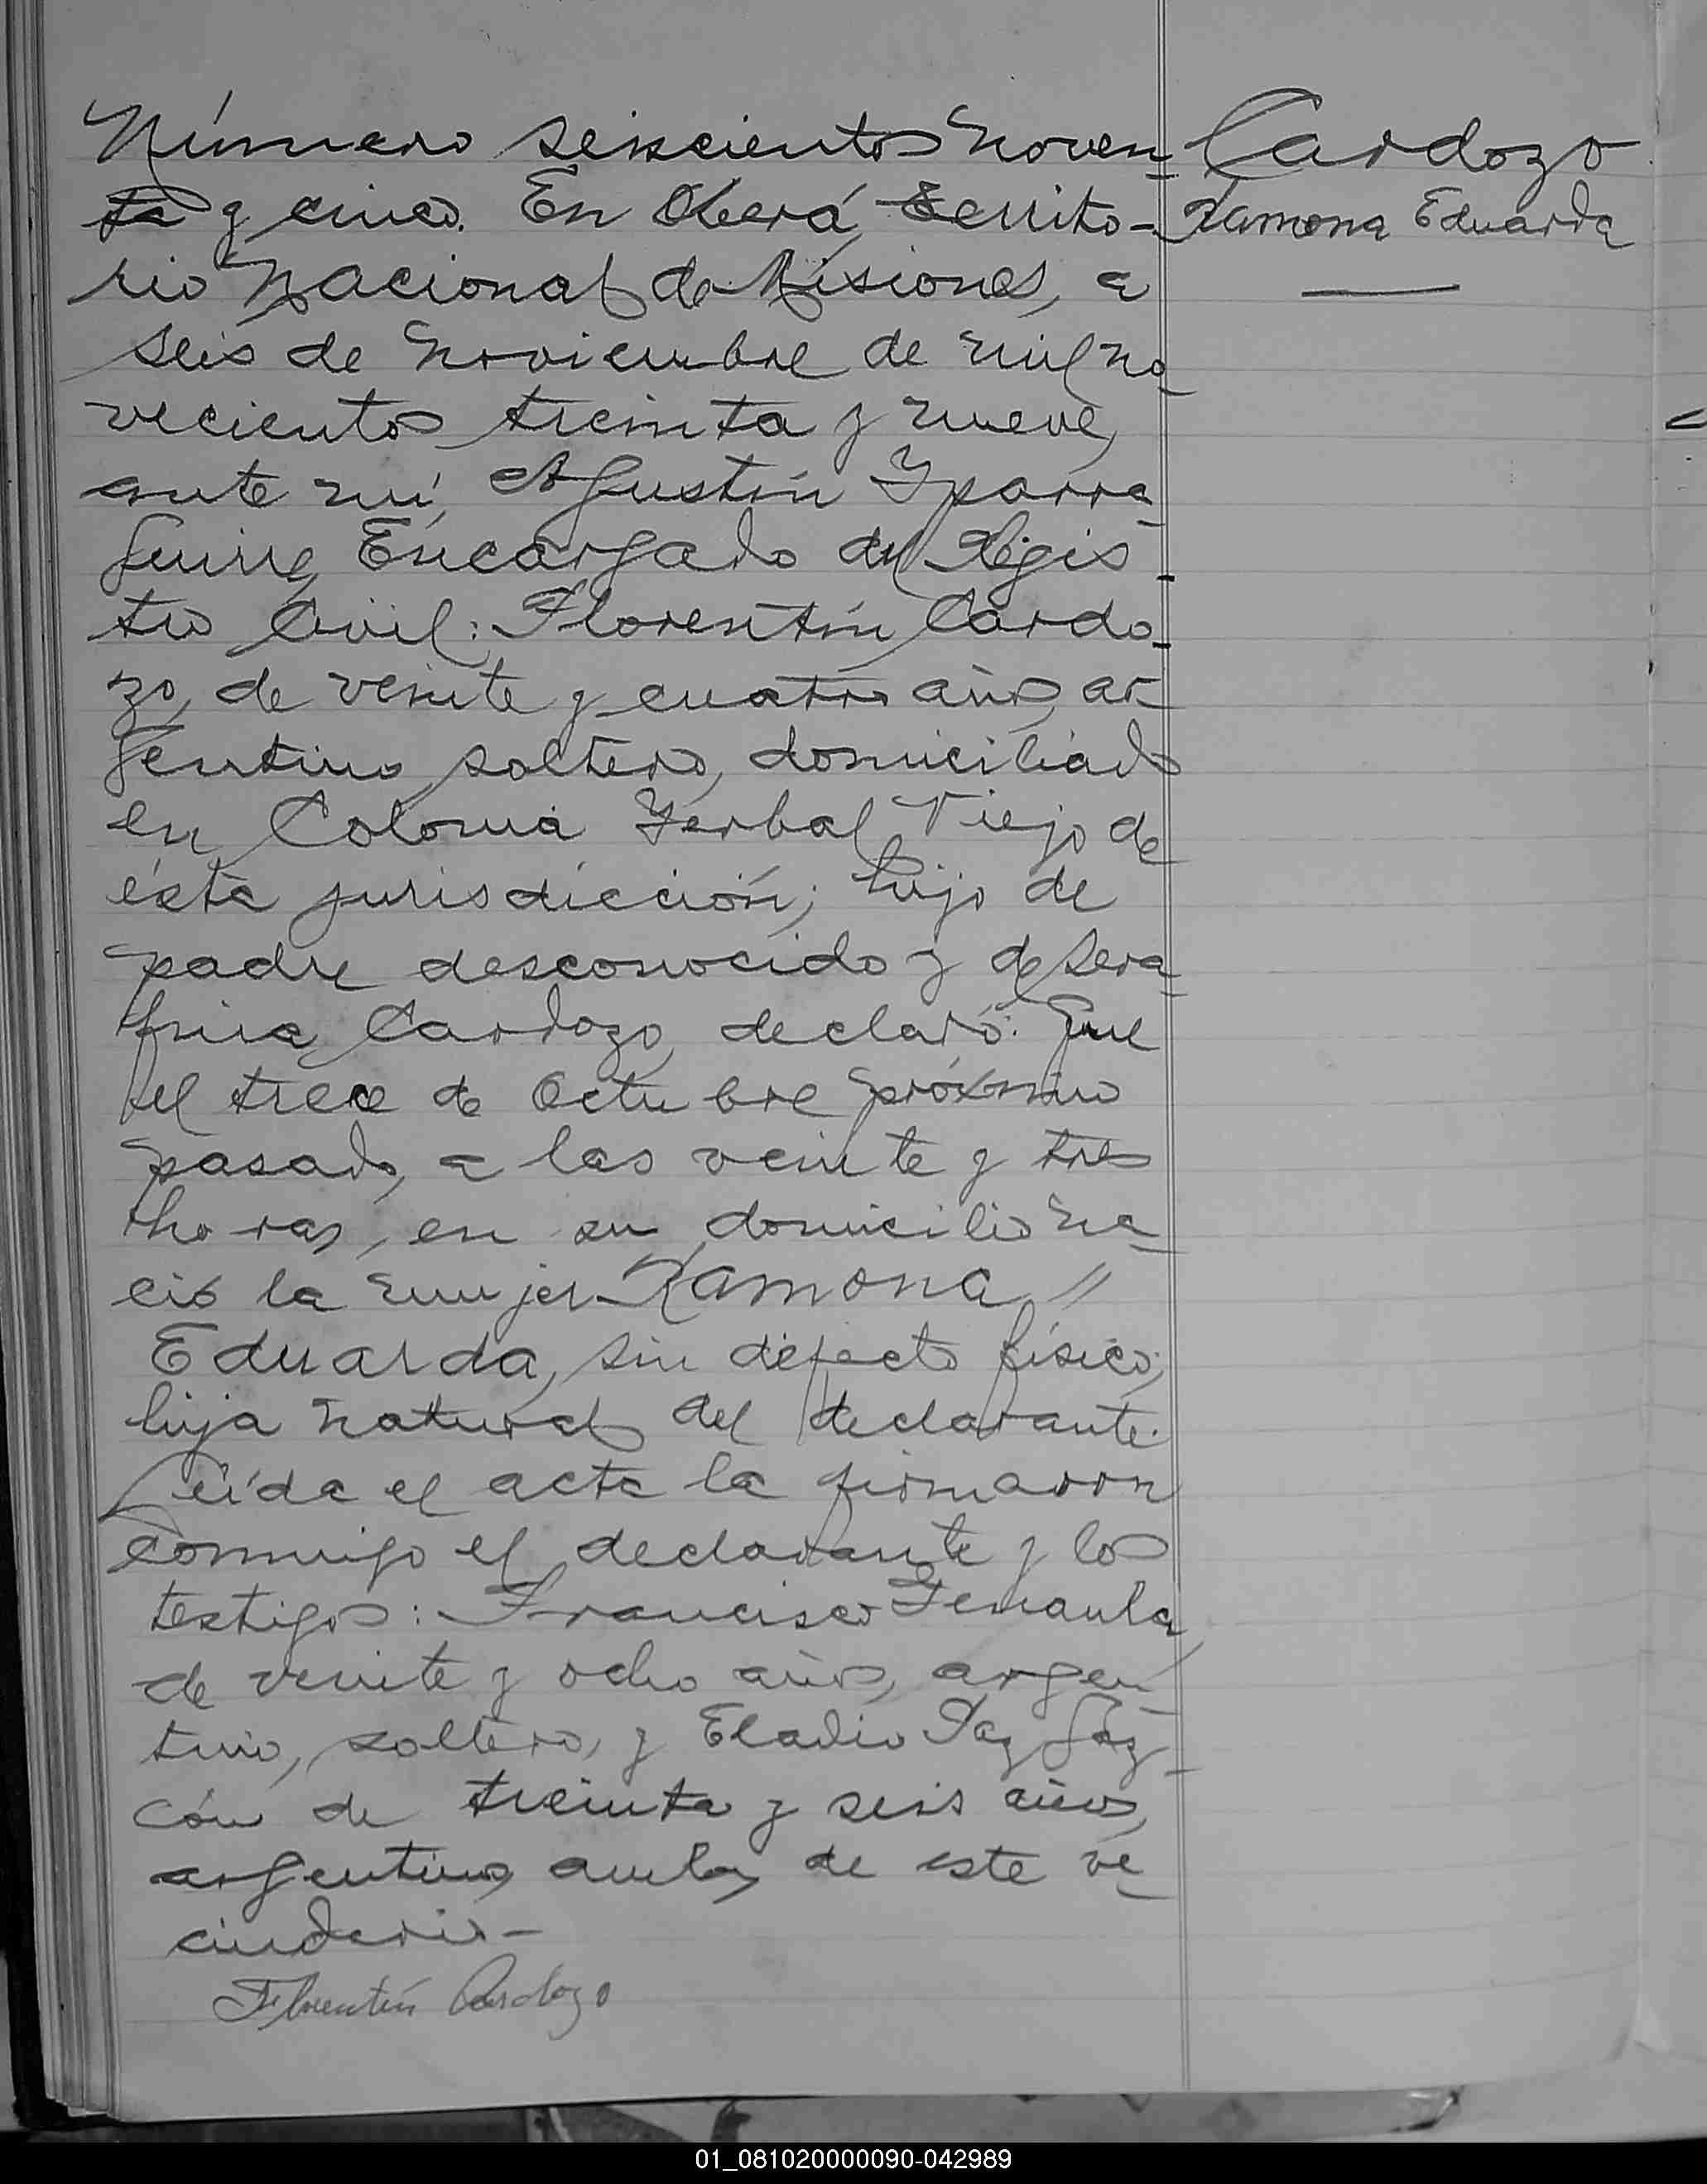 Número seiscientos noven-
ta y cinco. En Oberá, Territo-
rio Nacional de Misiones, a
seis de Noviembre de mil no-
vecientos treinta y nueve,
ante mí, Agustín Yparra-
guirre, Encargado del Regis-
tro Civil: Florentín Cardo-
zo, de veinte y cuatro años, ar-
gentino, soltero, domiciliado
en Colonia Yerbal Viejo de
ésta jurisdicción; hijo de
padre desconocido y de Sera-
fina Cardozo, declaró: Que
el trece de Octubre próximo
pasado, a las veinte y tres
horas, en su domicilio na-
ció la mujer Ramona //
Eduarda, sin defecto físico;
hija natural del declarante.
Leída el acta la firmaron
conmigo el declarante y los
testigos: Francisco
de veinte y ocho años, argen-
tino, soltero, y Eladio Paz Gaz-
cón de treinta y seis años,
argentino, ambos de este ve-
cindario-
Florentín Cardozo
Cardozo
Ramona Eduarda
01_081020000090-042989